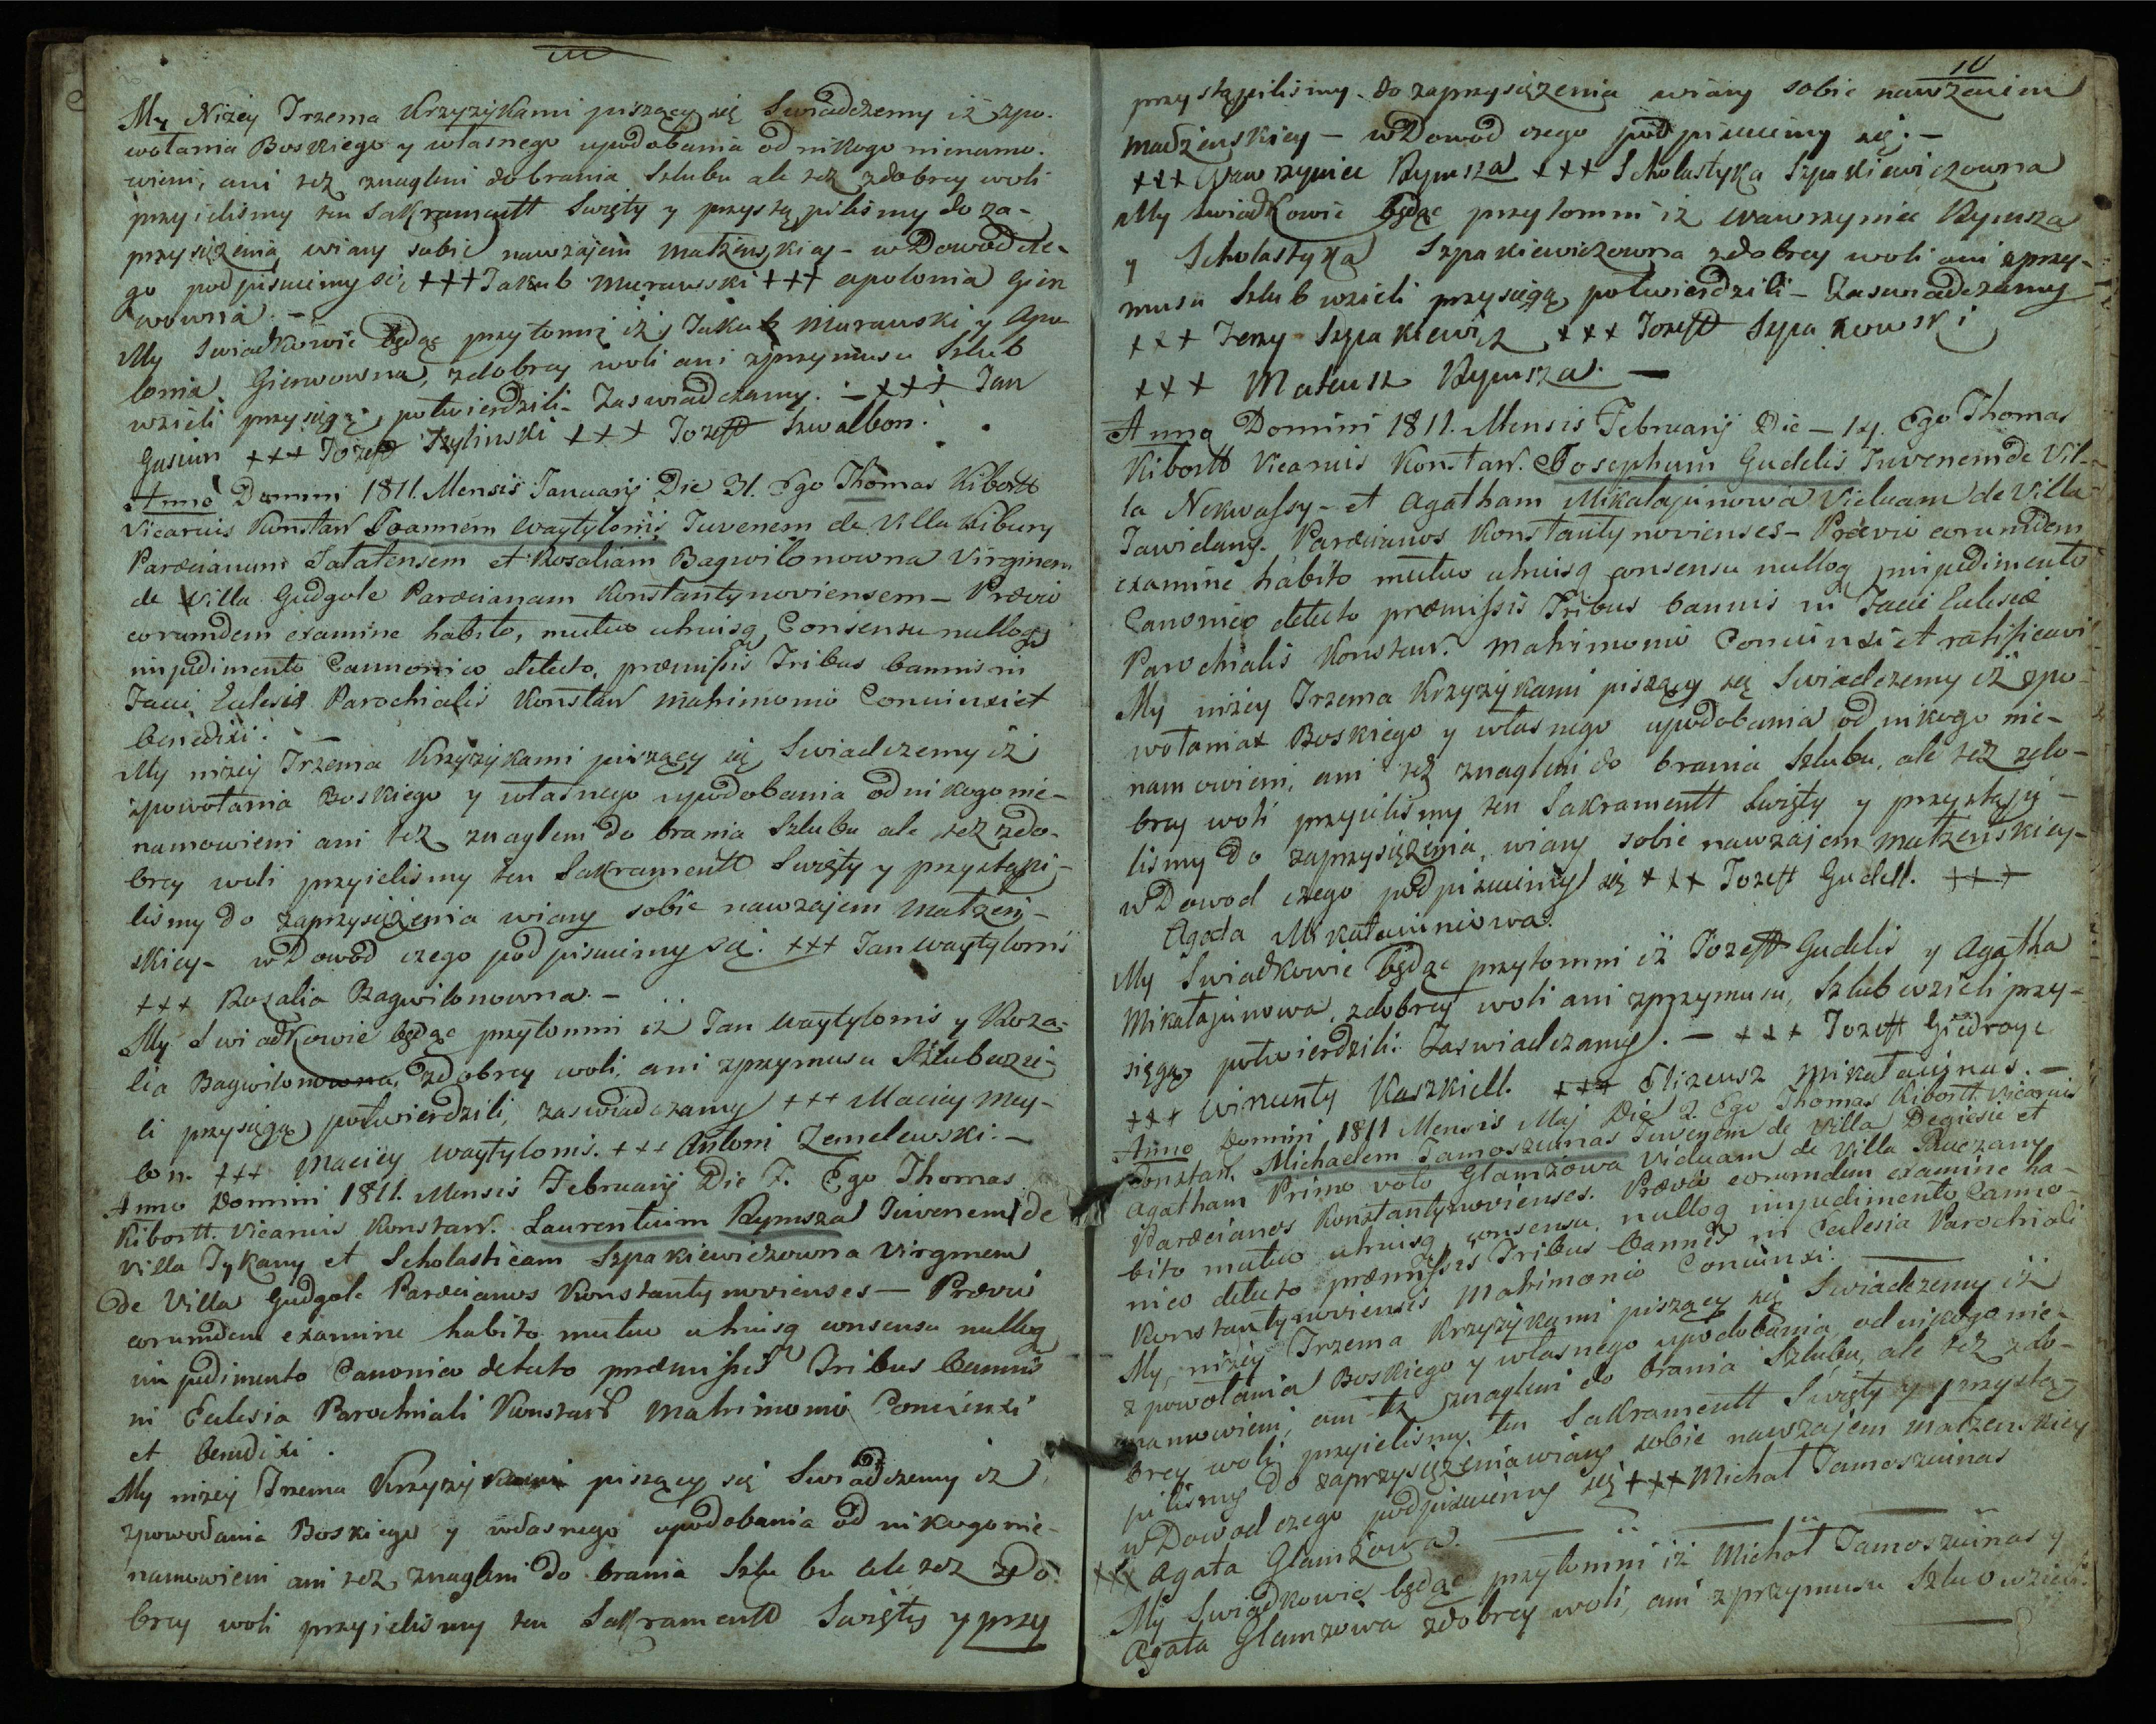 My Niżey Trzema Krzyżykami piszący się Swiadczemy iż zpo-
wołania Boskiego y własnego upodobania od nikogo nienamo-
wieni, ani też znagleni do brania Szlubu ale też zdobrey woli
przyieliśmy ten Sakramentt Swięty y przystąpiliśmy do za-
przysiężenia wiary sobie nawzajem małżenskiey - w Dowod cze-
go podpisuiemy się +++ Jakub Murawski +++ apolonia Gier
wowna. -
My Swiadkowie będąc przytomni iż Jakub Murawski y Apo
lonia Gierwowna, zdobrey woli ani zprzymusu Szlub
wzieli przysięgą, potwierdzili - Zaswiadczamy. - +++ Jan
+++ Jozeff +++ Jozeff Szwalbon.
Anno Domini 1811. Mensis Januarij Die 31. Ego Thomas Kibortt
Vicarius Konstan Joannem Waytylonis Juvenem de Villa Kibury
Paroecianum Tatatensem et Rosaliam Bagwilonowna Virginem
de Villa Gudgole Paroecianam Konstantynoviensem - Prævio
eorumdem examine habito, mutuo utriusq Consensu nulloq
impedimento Cannonico detecto, præmissis Tribus bannis in
Facie Eclesiæ Parochialis Konstan Matrimonio Coniunxi et
benedixi. -
My niżey Trzema Krzyżykami piszący się Swiadczemy iż
zpowołania Boskiego y własnego upodobania od nikogo nie-
namowieni ani też znagleni do brania Szlubu ale też zdo-
brey woli przyieliśmy ten Sakramentt Swięty y przystąpi-
liśmy do zaprzysiężenia wiary sobie nawzajem Małżen-
skiey - w Dowod czego podpisuiemy się. +++ Jan Waytylonis
+++ Rozalia Bagwilonowna. -
My Swiadkowie będąc przytomni iż Jan Waytylonis y Roza-
lia Bagwilonowna, zdobrey woli, ani zprzymusu Szlub wzie-
li przysięgą potwierdzili, zaswiadczamy +++ Maciey Mey-
lon. +++ Maciey Waytylonis. +++ Antoni Zemelewski. -
Anno Domini 1811. Mensis Februarij Die 7. Ego Thomas
Kibortt. Vicarius Konstan. Laurentium Rymsza Juvenem de
Villa Tykany et Scholasticam Szpakiewiczowna Virginem
de Villa Gudgole Paroecianos Konstantynovienses - Prævio
eorumdem examine habito mutuo utriusq consensu nulloq
impedimento Canonico detecto præmissis Tribus bannis
in Eclesia Parochiali Konstan Matrimonio Coniunxi
et benedixi.
My niżey Trzema Krzyżykami piszący się Swiadczemy iż
zpowołania Boskiego y własnego upodobania od nikogo nie-
namowieni ani też, znagleni do brania Szlubu ale też zdo
brey woli przyieliśmy ten Sakramentt Swięty y przy
10
przystąpiliśmy do zaprzysiężenia wiary sobie nawzaiem
małżenskiey - w Dowod czego podpisuiemy się. -
+++ Wawrzyniec Rymsza +++ Scholastyka Szpakiewiczowna
My swiadkowie będąc przytomni iż Wawrzyniec Rymsza
y Scholastyka Szpakiewiczowna zdobrey woli ani zprzy-
musu Szlub wzieli przysięgą potwierdzili - Zaswiadczamy
+++ Jerzy Szpakiewicz +++ Jozeff Szpakowski
+++ Mateusz Rymsza. -
Anno Domini 1811. Mensis Februarij Die - 14. Ego Thomas
Kibortt Vicarius Konstan. Josephum Gudelis Juvenem de Vil-
la Nekwassy - et Agatham Mikałajunowa Viduam de Villa
Jawidany. Paroecianos Konstantynovienses - Prævio eorumdem
examine habito mutuo utriusq consensu nulloq impedimento
Canonico detecto præmissis Tribus bannis in Facie Eclesiæ
Parochialis Konstan. Matrimonio Coniunxi et ratificavi
My niżey Trzema Krzyżykami piszący się Swiadczemy iż zpo-
wołania Boskiego y własnego upodobania od nikogo nie-
namowieni, ani też znagleni do brania Szlubu, ale też zdo-
brey woli przyieliśmy ten Sakramentt Swięty y przystąpi-
liśmy do zaprzysiężenia, wiary sobie nawzajem małżenskiey-
w Dowod czego podpisuiemy się +++ Jozeff Gudell. +++
Agata Mikałaiuniowa.
My Swiadkowie będąc przytomni iż Jozeff Gudelis y Agatha
Mikałajunowa, zdobrey woli ani zprzymusu, Szlub wzieli przy-
sięgą potwierdzili. Zaswiadczamy. - +++ Jozeff Giedroyc
+++ Wincenty Kaszkiell. +++ Elizeusz Mikałaiunas. -
Anno Domini 1811 Mensis Maj Die 2. Ego Thomas Kibortt Vicarius
Konstan. Michaelem Tamoszunas Juvenem de Villa Degiesie et
Agatham Primo voto Glamżowa Viduam de Villa Ruczany
Paroecianos Konstantynovienses. Prævio eorumdem examine ha-
bito mutuo utriusq consensu, nulloq impedimento Canno-
nico detecto præmissis Tribus bannis in Eclesia Parochiali
Konstantynoviensis Matrimonio Coniunxi.
My, niżey Trzema Krzyżykami piszący się Swiadczemy iż
zpowołania Boskiego y własnego upodobania od nikogo nie-
namowieni, ani też znagleni do brania Szlubu, ale też zdo-
brey woli przyieliśmy ten Sakramentt Swięty y przystą-
piliśmy do zaprzysiężenia wiary sobie nawzajem małżenskiey
w Dowod czego podpisuiemy się +++ Michał Tamoszunas
+++ Agata Glamżowa.
My Swiadkowie będąc przytomni iż Michał Tamoszunas y
Agata Glamzowa zdobrey woli, ani zprzymusu Szlub wzieli